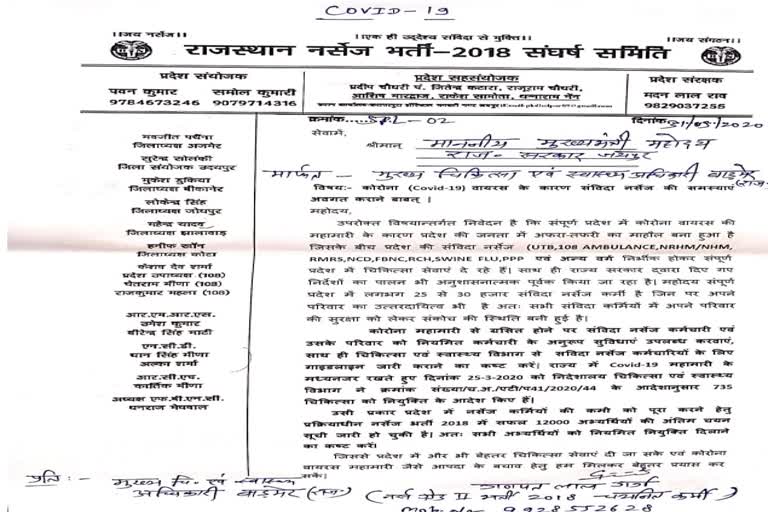 COVID-19
।।जय नर्सेज।।
।।एक ही उद्देश्य संविदा से मुक्ति।।
।।जय संगठन।।
राजस्थान नर्सेज भर्ती-2018 संघर्ष समिति
प्रदेश संयोजक
पवन कुमार समोल कुमार
9784673246 9079714316
प्रदेश सहसंयोजक
प्रदीप चौधरी पं. जितेन्द्र कटारा, राजूराम चौधरी,
आशिष भारद्वाज, राकेश सामोता, धन्नाराम नैण
प्रदेश संरक्षक
मदन लाल राव
9829037256
क्रमांक SPL-02
दिनांक 31/03/2020
सेवामें,
श्रीमान् माननीय मुख्यमंत्री महोदय
राज. सरकार जयपुर
मार्फत - मुख्य चिकित्सा एवं स्वास्थ्य अधिकारी बाड़मेर (राज.)
विषय:- कोरोना (Covid-19) वायरस के कारण संविदा नर्सेज की समस्याएं
अवगत कराने बाबत्।
महोदय,
उपरोक्त विषयान्तर्गत निवेदन है कि संपूर्ण प्रदेश में कोरोना वायरस की
महामारी के कारण प्रदेश की जनता में अफरा-तफरी का माहौल बना हुआ है
जिसके बीच प्रदेश की संविदा नर्सेज (UTB,108 AMBULANCE,NRHM/NHM,
RMRS,NCD,FBNC,RCH,SWINE FLU,PPP एवं अन्य वर्ग निर्भीक होकर संपूर्ण
प्रदेश में चिकित्सा सेवाएं दे रहे हैं। साथ ही राज्य सरकार द्वारा दिए गए
निर्देशों का पालन भी अनुशासनात्मक पूर्वक किया जा रहा है। महोदय संपूर्ण
प्रदेश में लगभग 25 से 30 हजार संविदा नर्सेज कर्मी है जिन पर अपने
परिवार का उत्तरदायित्व भी है अतः सभी संविदा कर्मियों में अपने परिवार
की सुरक्षा को लेकर संकोच की स्थिति बनी हुई है।
कोरोना महामारी से ग्रसित होने पर संविदा नर्सेज कर्मचारी एवं
उसके परिवार को नियमित कर्मचारी के अनुरूप सुविधाएं उपलब्ध करवाएं,
साथ ही चिकित्सा एवं स्वास्थ्य विभाग से संविदा नर्सेज कर्मचारियों के लिए
गाइडलाइन जारी कराने का कष्ट करें। राज्य में Covid-19 महामारी के
मध्यनजर रखते हुए दिनांक 25-3-2020 को निदेशालय चिकित्सा एवं स्वास्थ्य
विभाग ने क्रमांक संख्या/प.अ./एटी/प41/2020/44 के आदेशानुसार 735
चिकित्सा को नियुक्ति के आदेश किए हैं।
उसी प्रकार प्रदेश में नर्सेज कर्मियों की कमी को पूरा करने हेतु
प्रक्रियाधीन नर्सेज भर्ती 2018 में सफल 12000 अभ्यर्थियों की अंतिम चयन
सूची जारी हो चुकी है। अतः सभी अभ्यर्थियों को नियमित नियुक्ति दिलाने
का कष्ट करें।
जिससे प्रदेश में और भी बेहतर चिकित्सा सेवाएं दी जा सके एवं कोरोना
वायरस महामारी जैसे आपदा के बचाव हेतु हम मिलकर बेहतर प्रयास कर
सके।
जिलाध्यक्ष अजमेर
सुरेन्द्र सोलंकी
जिला संयोजक उदयपुर
मुकेश डुकिया
जिलाध्यक्ष बीकानेर
लोकेन्द्र सिंह
जिलाध्यक्ष जोधपुर
महेन्द्र यादव
जिलाध्यक्ष झालावाड़
हनीफ खाँन
जिलाध्यक्ष कोटा
केशव देव शर्मा
प्रदेश उपाध्यक्ष (108)
चेतराम मीणा (108)
राजकुमार महला (108)
आर.एम.आर.एस.
उमेश कुमार
वीरेन्द्र सिंह भाटी
एन.सी.डी.
थान सिंह मीणा
अल्का शर्मा
आर.सी.एच.
कार्तिक मीणा
अध्यक्ष एफ.बी.एन.सी.
धनराज मेघवाल
प्रति :- मुख्य चि. एवं स्वास्थ्य
अधिकारी बाड़मेर (राज.)
गणपत लाल
(नर्स ग्रेड II भर्ती 2018 - चयनित कर्मी)
Mob. No. 9928552628